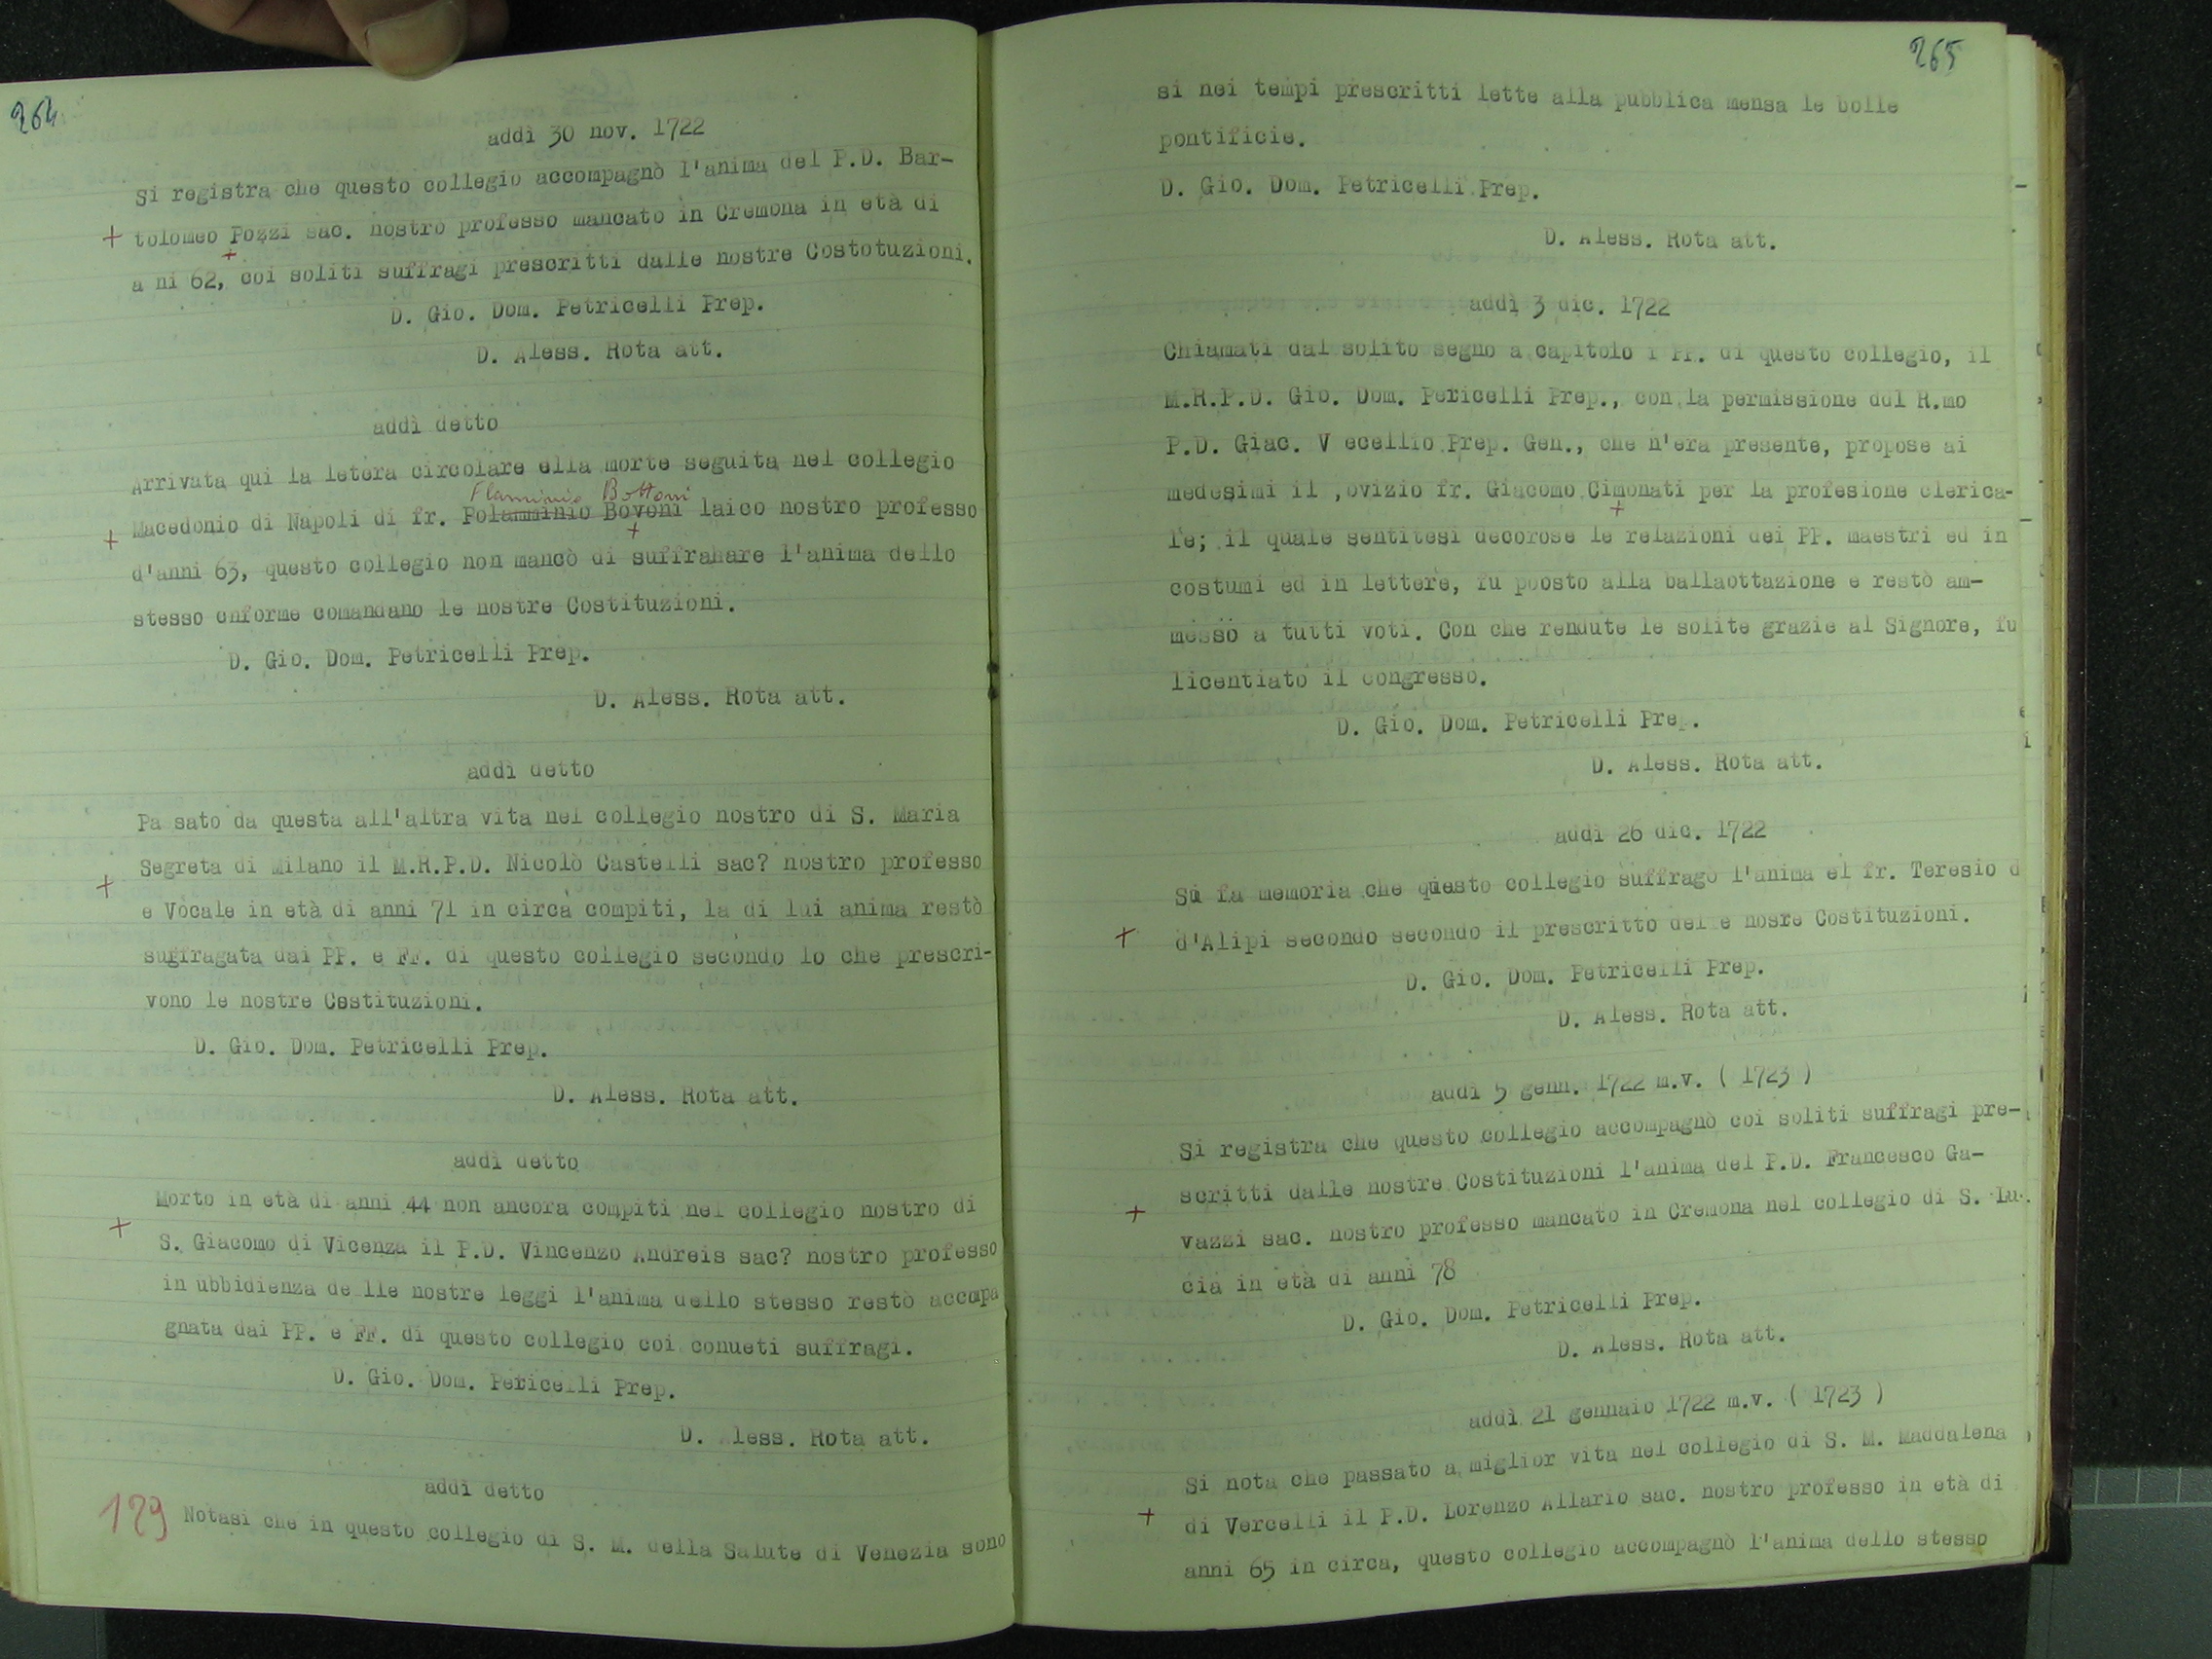 264
addì 30 nov. 1722
Si registra che questo collegio accompagnò l'anima del P.D. Bar-
+ tolomeo Pozzi sac. nostro professo mancato in Cremona in età di
+
a ni 62, coi soliti suffragi prescritti dalle nostre Costotuzioni.
D. Gio. Dom. Petricelli Prep.
D. Aless. Rota att.
addì detto
Arrivata qui la letera circolare ella morte seguita nel collegio
Flaminio Bottoni
+ Macedonio di Napoli di fr. Polamminio Bovoni laico nostro professo
+
d'anni 63, questo collegio non mancò di suffrahare l'anima dello
stesso cnforme comandano le nostre Costituzioni.
D. Gio. Dom. Petricelli Prep.
D. Aless. Rota att.
addì detto
Pa sato da questa all'altra vita nel collegio nostro di S. Maria
+ Segreta di Milano il M.R.P.D. Nicolò Castelli sac? nostro professo
e Vocale in età di anni 71 in circa compiti, la di lui anima restò
sugfragata dai PP. e FF. di questo collegio secondo lo che prescri-
vono le nostre Costituzioni.
D. Gio. Dom. Petricelli Prep.
D. Aless. Rota att.
addì detto
+ Morto in età di anni 44 non ancora compiti nel collegio nostro di
S. Giacomo di Vicenza il P.D. Vincenzo Andreis sac? nostro professo
in ubbidienza de lle nostre leggi l'anima dello stesso restò accompa
gnata dai PP. e FF. di questo collegio coi conueti suffragi.
D. Gio. Dom. Petricelli Prep.
D. Aless. Rota att.
addì detto
129 Notasi che in questo collegio di S. M. della Salute di Venezia sono
265
si nei tempi prescritti lette alla pubblica mensa le bolle
pontificie.
D. Gio. Dom. Petricelli Prep.
D. Aless. Rota att.
addì 3 dic. 1722
Chiamati dal solito segno a capitolo i PP. di questo collegio, il
M.R.P.D. Gio. Dom. Pericelli Prep., con la permissione dul R.mo
P.D. Giac. V ecellio Prep. Gen., che n'era presente, propose ai
medesimi il ,ovizio fr. Giacomo Cimonati per la profesione clerica-
+
le; il quale sentitesi decorose le relazioni dei PP. maestri ed in
costumi ed in lettere, fu poosto alla ballaottazione e restò am-
messo a tutti voti. Con che rendute le solite grazie al Signore, fu
licentiato il congresso.
D. Gio. Dom. Petricelli Prep.
D. Aless. Rota att.
addì 26 dic. 1722
Si fa memoria che questo collegio suffragò l'anima el fr. Teresio d
+ d'Alipi secondo secondo il prescritto delle nosre Costituzioni.
D. Gio. Dom. Petricelli Prep.
D. Aless. Rota att.
addì 5 genn. 1722 m.v. ( 1723 )
Si registra che questo collegio accompagnò coi soliti suffragi pre-
scritti dalle nostre Costituzioni l'anima del P.D. Francesco Ga-
+ vazzi sac. nostro professo mancato in Cremona nel collegio di S. Lu.
cia in età di anni 78
D. Gio. Dom. Petricelli Prep.
D. Aless. Rota att.
addì 21 gennaio 1722 m.v. ( 1723 )
Si nota che passato a miglior vita nel collegio di S. M. Maddalena
+ di Vercelli il P.D. Lorenzo Allario sac. nostro professo in età di
anni 65 in circa, questo collegio accompagnò l'anima dello stesso